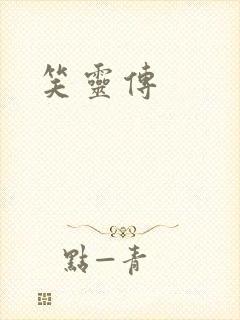 笑靈傳
點一青